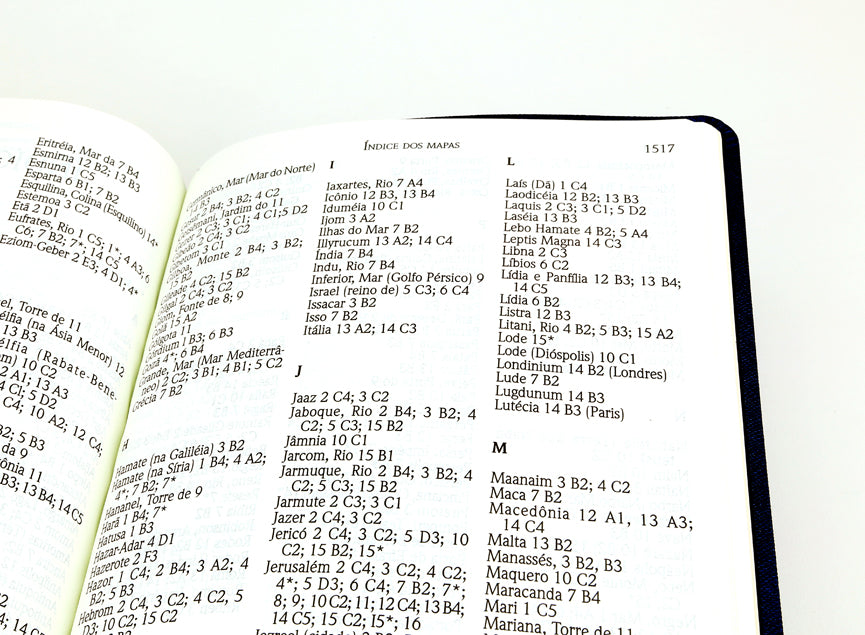 Eritréia, Mar da 7 B4
Esmirna 12 B2; 13 B3
Esnuna 1 C5
Esparta 6 B1; 7 B2
Esquilina, Colina (Esquilino) 14*
Estemoa 3 C2
Etã 2 D1
Eufrates, Rio 1 C5; 1*; 4 A3; 6
C6; 7 B2; 7*; 14 C5
Eziom-Geber 2 E3; 4 D1; 4*
Torre de 11
(na Ásia Menor) 12
13 B3
(Rabate-Bene-
10 C2
2 A1; 13 A3
4 C1; 5 D2
C4; 10 A2; 12 C4;
B2; 5 B3
da 9
11
B3; 13 B4; 14 C5
ÍNDICE DOS MAPAS
1517
Mar (Mar do Norte)
14 B3
2 B4; 3 B2; 4 C2
Jardim do 11
2 C3; 3 C1; 4 C1; 5 D2
2 C4; 3 C2
3 C1
Monte 2 B4; 3 B2;
15 B2
4 C2; 15 B2
2 C4; 3 C2
Fonte de 8; 9
15 A2
Gólgota 11
Górdium 1 B3; 6 B3
Gozã 4*; 6 B4
Grande, Mar (Mar Mediterrâ-
neo) 2 C2; 3 B1; 4 B1; 5 C2
Grécia 7 B2
H
Hamate (na Galiléia) 3 B2
Hamate (na Síria) 1 B4; 4 A2;
4*; 7 B2; 7*
Hananel, Torre de 9
Harã 1 B4; 7*
Hatusa 1 B3
Hazar-Adar 4 D1
Hazerote 2 F3
Hazor 1 C4; 2 B4; 3 A2; 4
B2; 5 B3
Hebrom 2 C4, 3 C2; 4 C2, 5
D3; 10 C2; 15 C2
I
Iaxartes, Rio 7 A4
Icônio 12 B3, 13 B4
Iduméia 10 C1
Ijom 3 A2
Ilhas do Mar 7 B2
Illyrucum 13 A2; 14 C4
Índia 7 B4
Indu, Rio 7 B4
Inferior, Mar (Golfo Pérsico) 9
Israel (reino de) 5 C3; 6 C4
Issacar 3 B2
Isso 7 B2
Itália 13 A2; 14 C3
J
Jaaz 2 C4; 3 C2
Jaboque, Rio 2 B4; 3 B2; 4
C2; 5 C3; 15 B2
Jâmnia 10 C1
Jarcom, Rio 15 B1
Jarmuque, Rio 2 B4; 3 B2; 4
C2; 5 C3; 15 B2
Jarmute 2 C3; 3 C1
Jazer 2 C4; 3 C2
Jericó 2 C4; 3 C2; 5 D3; 10
C2; 15 B2; 15*
Jerusalém 2 C4; 3 C2; 4 C2;
4*; 5 D3; 6 C4; 7 B2; 7*;
8; 9; 10 C2; 11; 12 C4; 13 B4;
14 C5; 15 C2; 15*; 16
L
Laís (Dã) 1 C4
Laodicéia 12 B2; 13 B3
Laquis 2 C3; 3 C1; 5 D2
Laséia 13 B3
Lebo Hamate 4 B2; 5 A4
Leptis Magna 14 C3
Libna 2 C3
Líbios 6 C2
Lídia e Panfília 12 B3; 13 B4;
14 C5
Lídia 6 B2
Listra 12 B3
Litani, Rio 4 B2; 5 B3; 15 A2
Lode 15*
Lode (Dióspolis) 10 C1
Londinium 14 B2 (Londres)
Lude 7 B2
Lugdunum 14 B3
Lutécia 14 B3 (Paris)
M
Maanaim 3 B2; 4 C2
Maca 7 B2
Macedônia 12 A1, 13 A3;
14 C4
Malta 13 B2
Manassés, 3 B2, B3
Maquero 10 C2
Maracanda 7 B4
Mari 1 C5
Mariana, Torre de 11